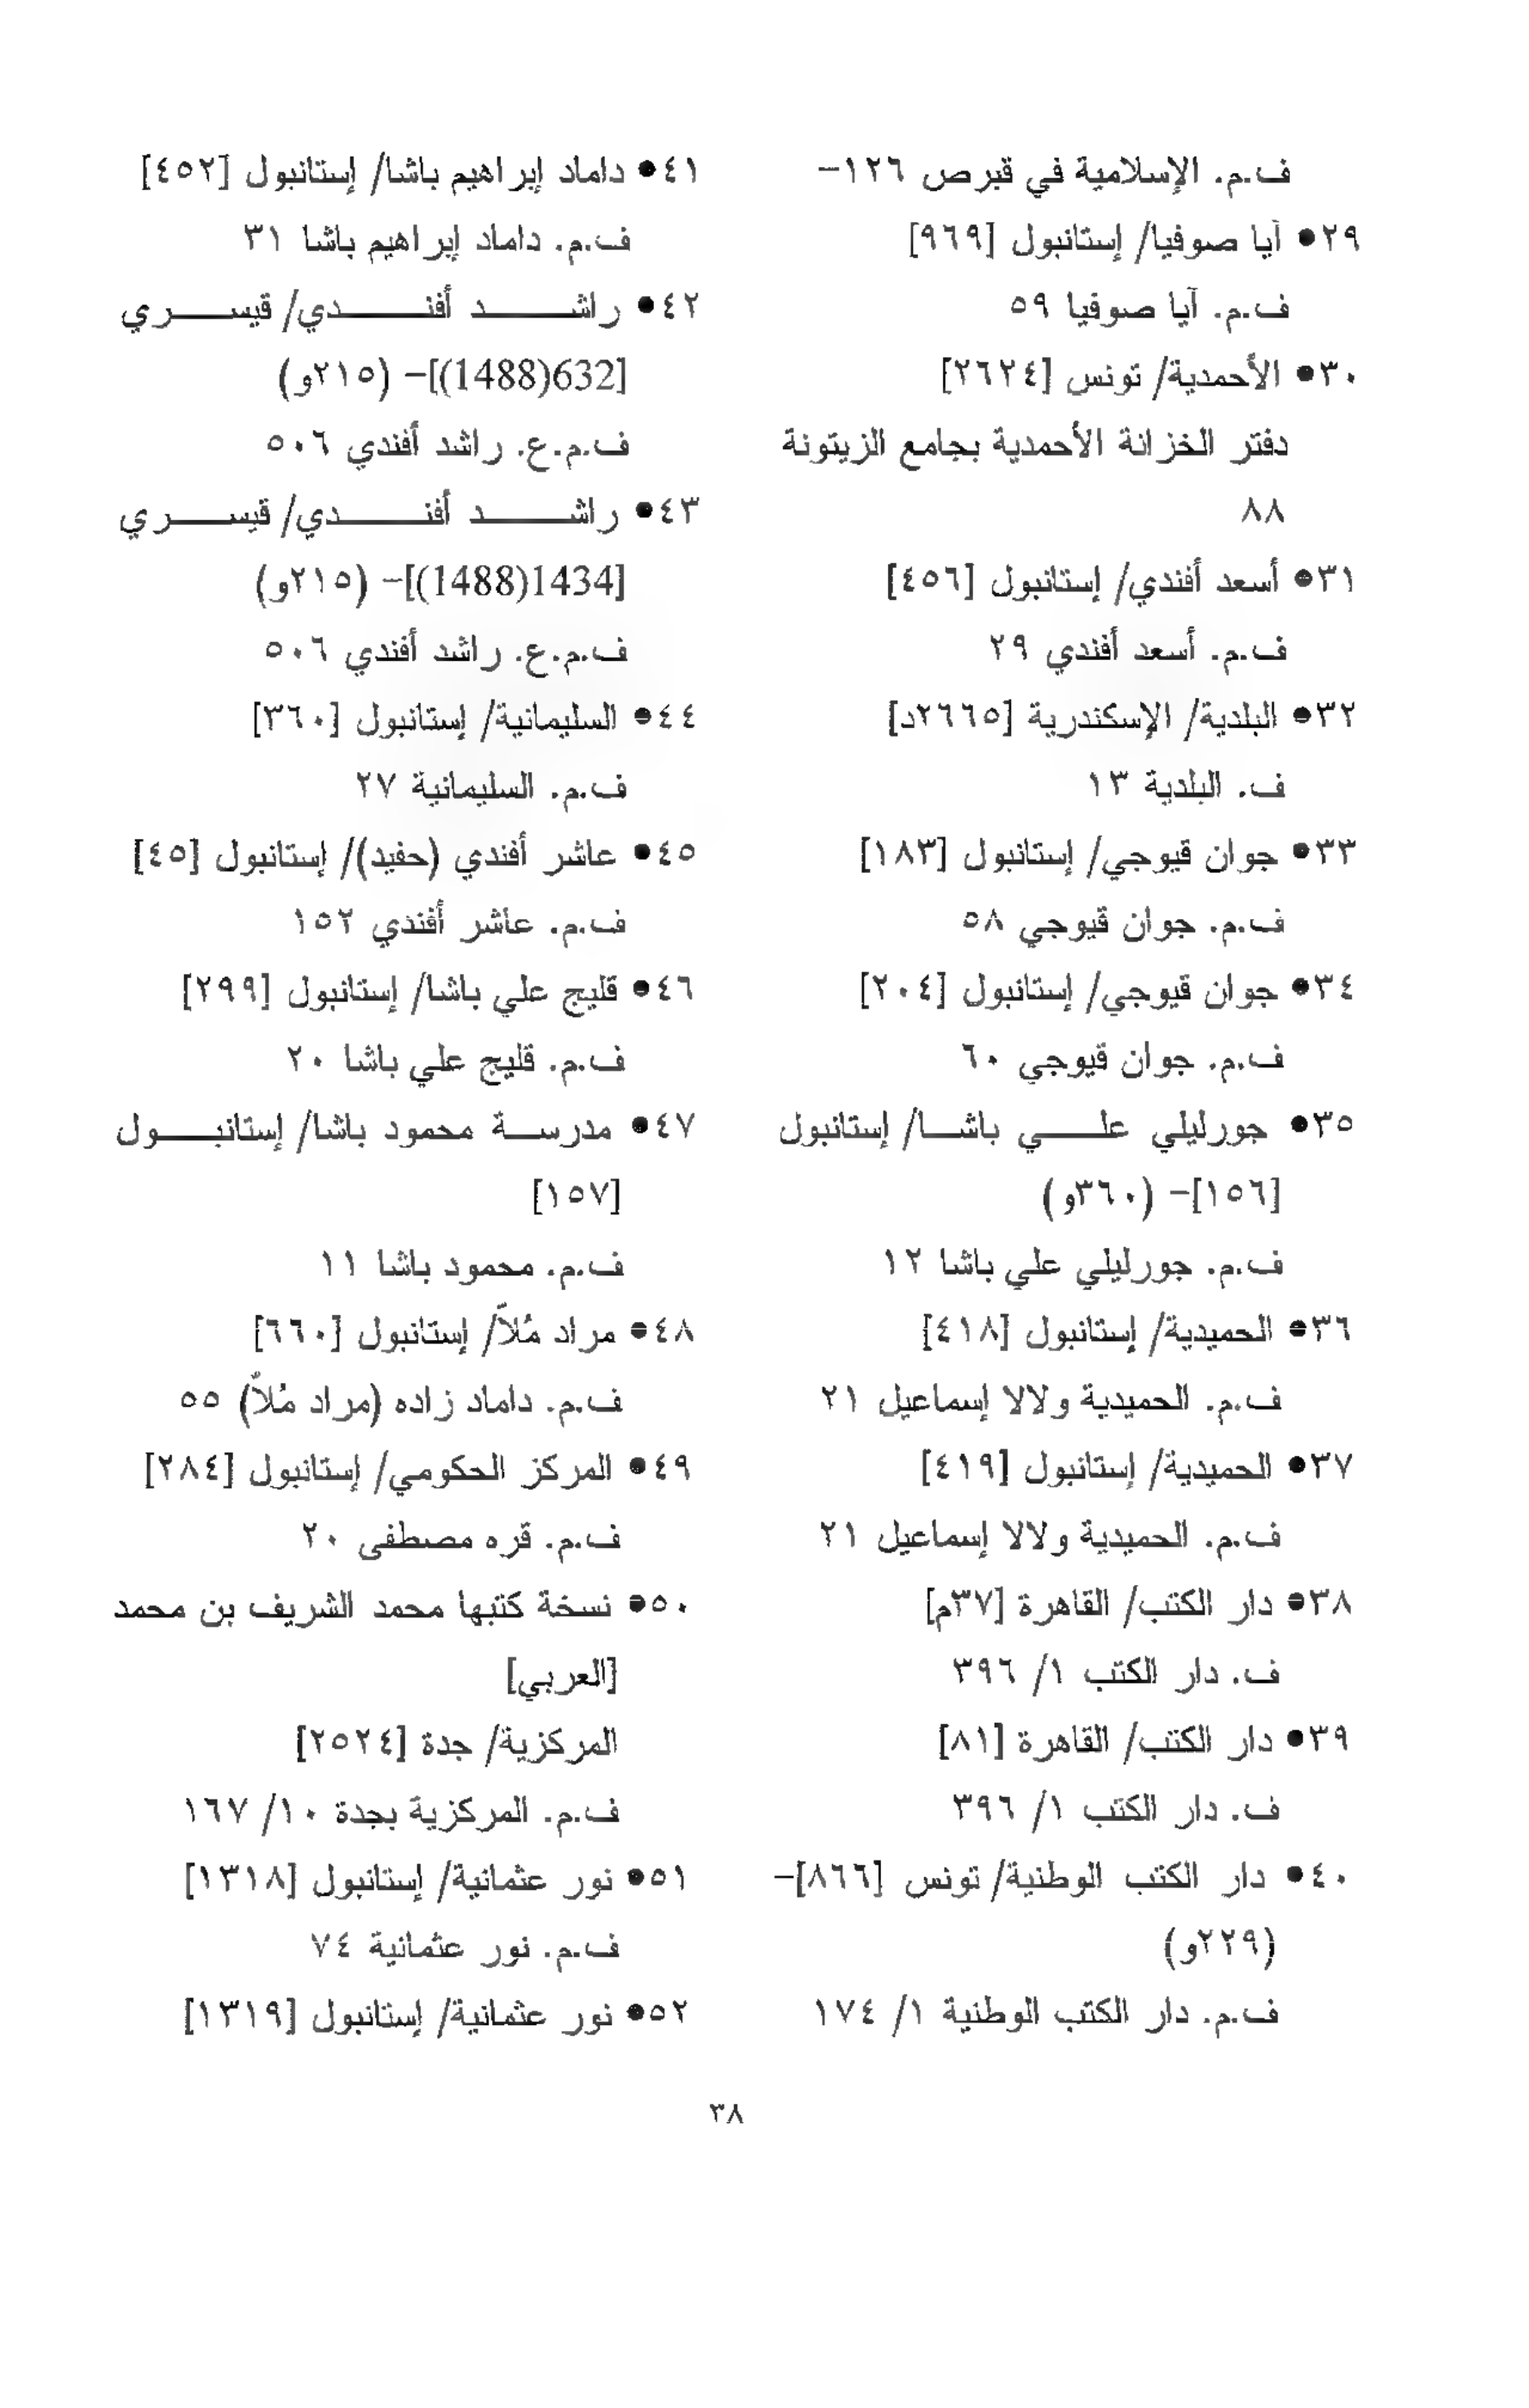 ف.م. الإسلامية في قبرص ١٢٦-
٢٩● آيا صوفيا/ إستانبول [٩٦٩]
ف.م. آيا صوفيا ٥٩
٣٠● الأحمدية/ تونس [٢٦٢٤]
دفتر الخزانة الأحمدية بجامع الزيتونة
٨٨
٣١● أسعد أفندي/ إستانبول [٤٥٦]
ف.م. أسعد أفندي ٢٩
٣٢● البلدية/ الإسكندرية [٢٦٦٥د]
ف. البلدية ١٣
٣٣● جوان قيوجي/ إستانبول [١٨٣]
ف.م. جوان قيوجي ٥٨
٣٤● جوان قيوجي/ إستانبول [٢٠٤]
ف.م. جوان قيوجي ٦٠
٣٥● جورليلي علي باشا/ إستانبول
[١٥٦]- (٣٦٠و)
ف.م. جورليلي علي باشا ١٢
٣٦● الحميدية/ إستانبول [٤١٨]
ف.م. الحميدية ولالا إسماعيل ٢١
٣٧● الحميدية/ إستانبول [٤١٩]
ف.م. الحميدية ولالا إسماعيل ٢١
٣٨● دار الكتب/ القاهرة [٣٧م]
ف. دار الكتب ١/ ٣٩٦
٣٩● دار الكتب/ القاهرة [٨١]
ف. دار الكتب ١/ ٣٩٦
٤٠● دار الكتب الوطنية/ تونس [٨٦٦]-
(٢٢٩و)
ف.م. دار الكتب الوطنية ١/ ١٧٤
٤١● داماد إبراهيم باشا/ إستانبول [٤٥٢]
ف.م. داماد إبراهيم باشا ٣١
٤٢● راشد أفندي/ قيسري
[632(1488)]- (٢١٥و)
ف.م.ع. راشد أفندي ٥٠٦
٤٣● راشد أفندي/ قيسري
[1434(1488)]- (٢١٥و)
ف.م.ع. راشد أفندي ٥٠٦
٤٤● السليمانية/ إستانبول [٣٦٠]
ف.م. السليمانية ٢٧
٤٥● عاشر أفندي (حفيد)/ إستانبول [٤٥]
ف.م. عاشر أفندي ١٥٢
٤٦● قليج علي باشا/ إستانبول [٢٩٩]
ف.م. قليج علي باشا ٢٠
٤٧● مدرسة محمود باشا/ إستانبول
[١٥٧]
ف.م. محمود باشا ١١
٤٨● مراد مُلاّ/ إستانبول [٦٦٠]
ف.م. داماد زاده (مراد مُلاّ) ٥٥
٤٩● المركز الحكومي/ إستانبول [٢٨٤]
ف.م. قره مصطفى ٢٠
٥٠● نسخة كتبها محمد الشريف بن محمد
[العربي]
المركزية/ جدة [٢٥٢٤]
ف.م. المركزية بجدة ١٠/ ١٦٧
٥١● نور عثمانية/ إستانبول [١٣١٨]
ف.م. نور عثمانية ٧٤
٥٢● نور عثمانية/ إستانبول [١٣١٩]
٣٨